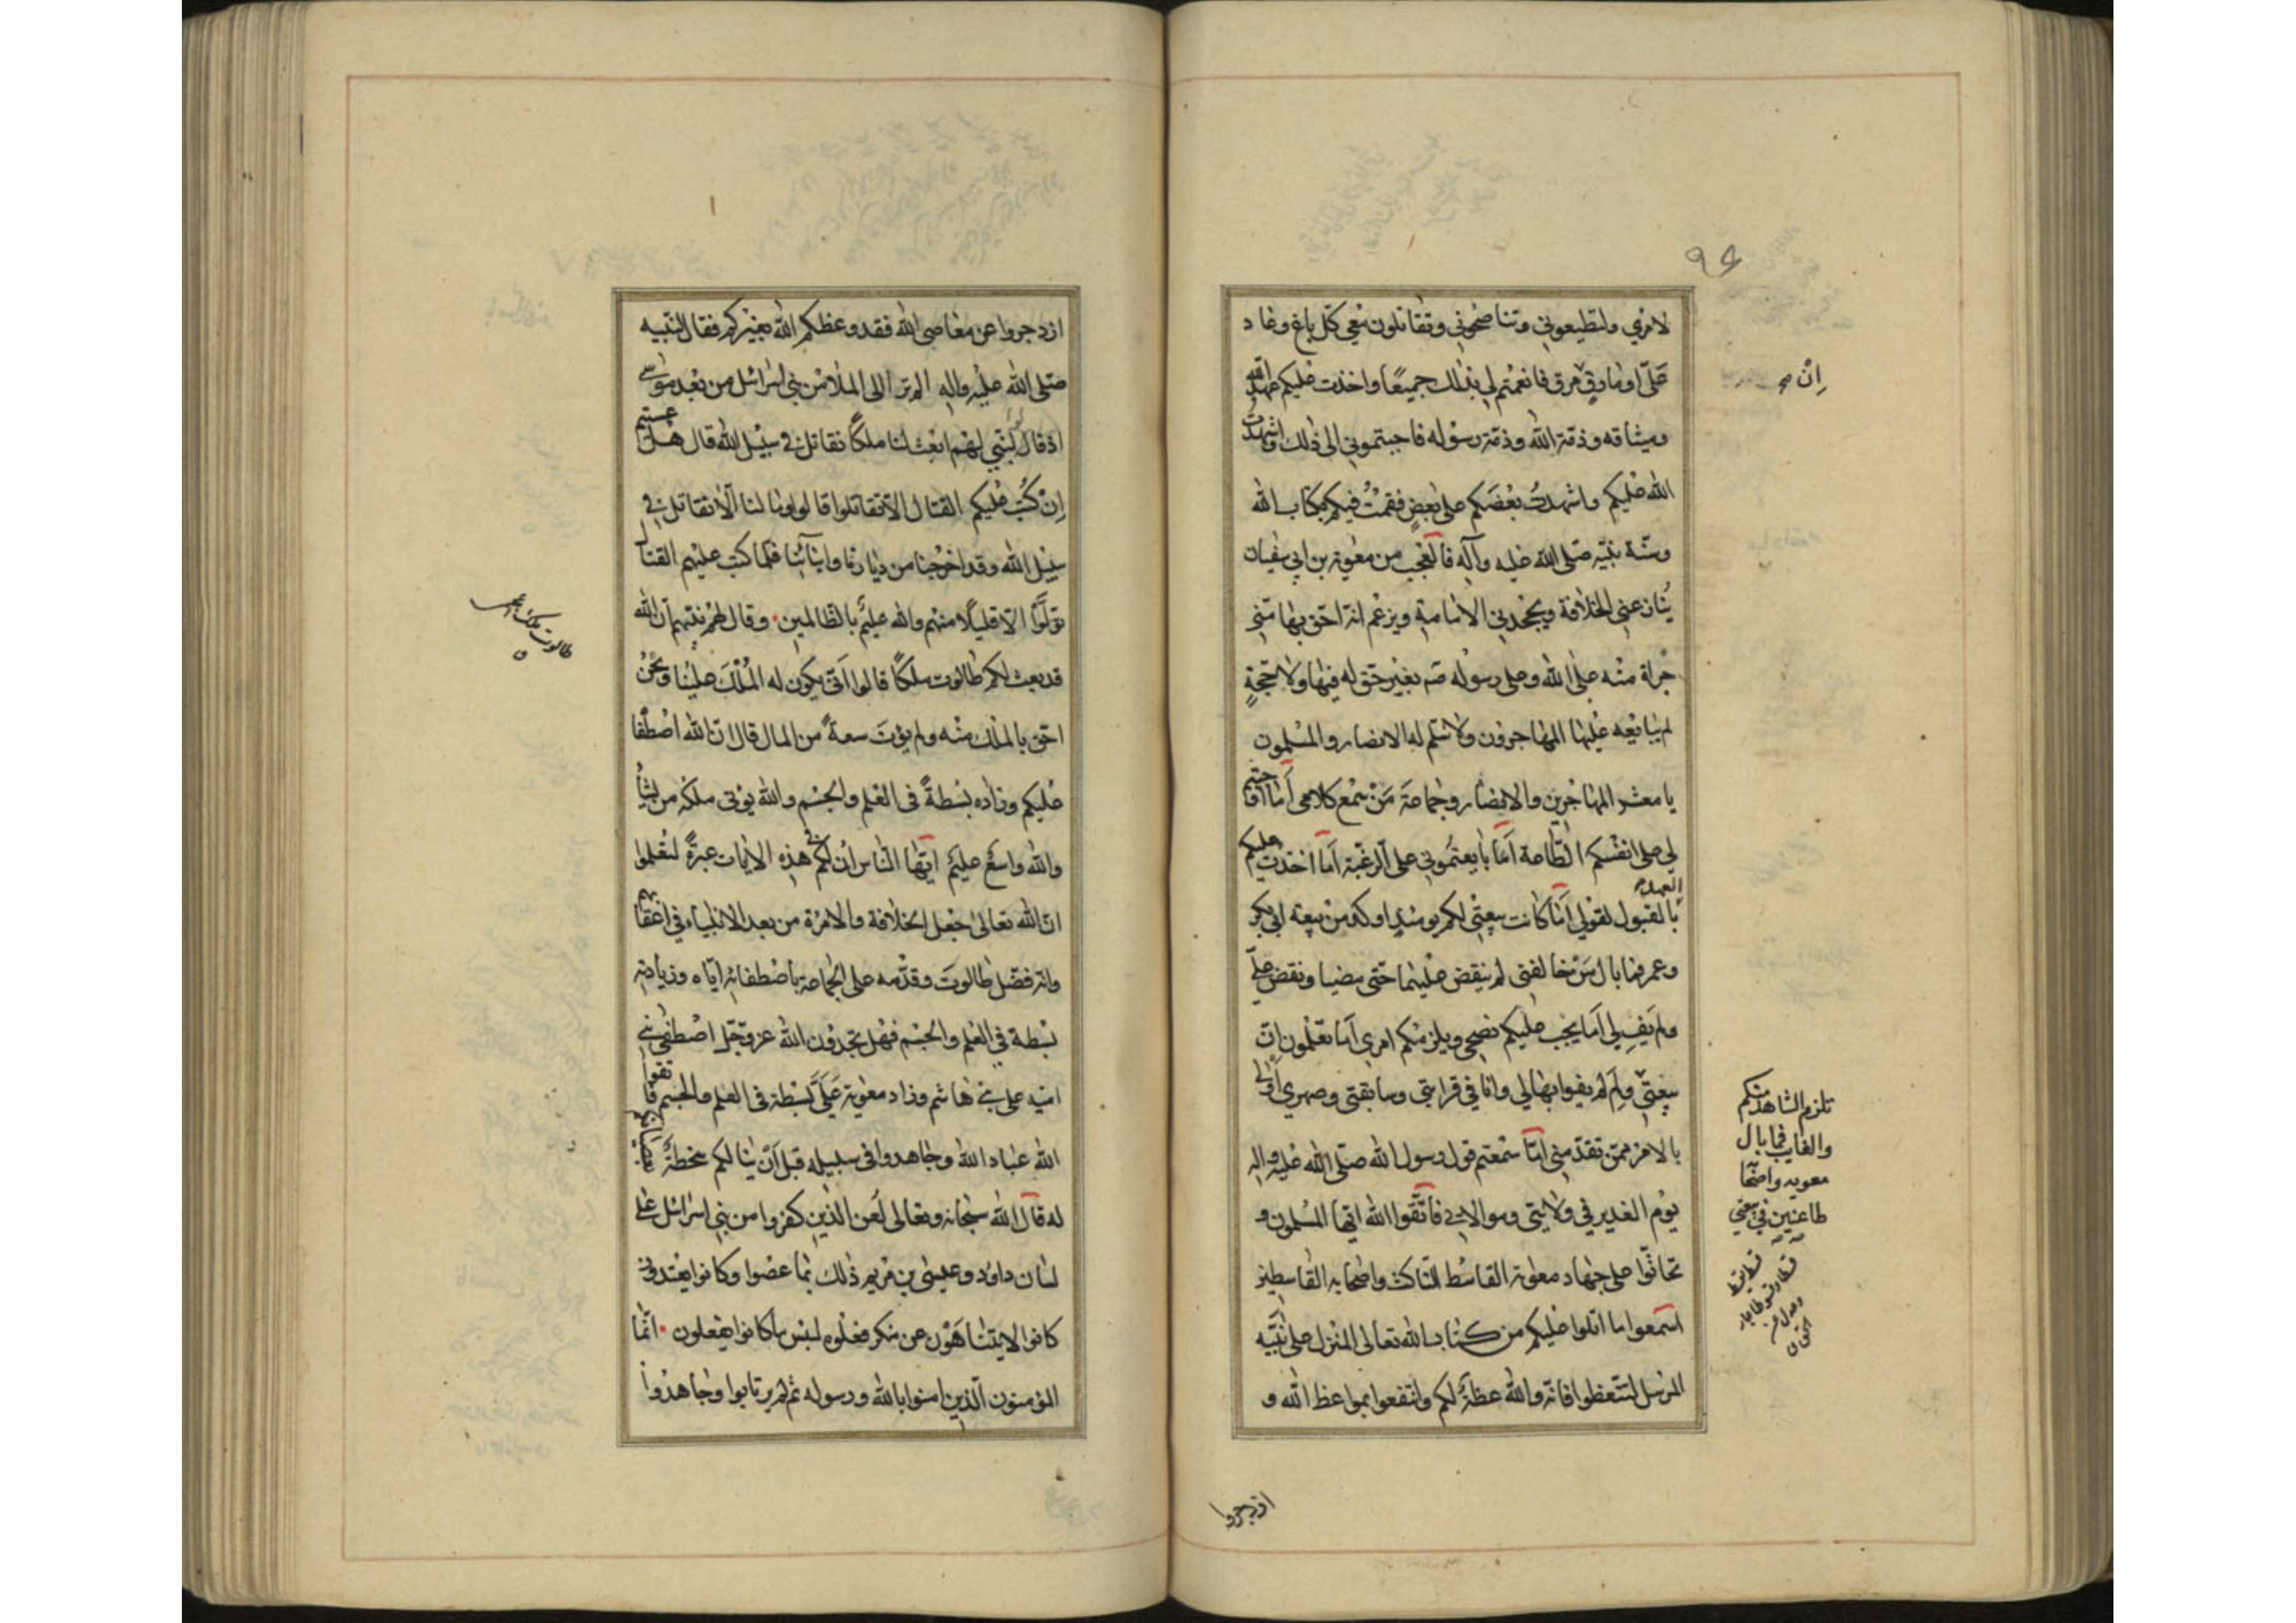 ٩٤
لامري ولتطيعوني وتناصحوني وتقاتلون معي كل باغ وعاد
عليّ او مارق مرق فانعمتم لي بذلك جميعًا واخذت عليكم عهد الله
وميثاقه وذمّة الله وذمّة رسوله فاجبتموني الى ذلك واشهدت
الله عليكم واشهدت بعضكم على بعضٍ فقمتُ فيكم بكتاب الله
وسنّة نبيّه صلّى الله عليه وآله فالعجب من معوية بن ابي سفيان
ينازعني الخلافة ويجحدني الامامة ويزعم انه احق بها منّي
جراة منه على الله وعلى رسوله صم بغير حق له فيها ولا حجّةٍ
لم يبايعه عليها المهاجرون ولا سلّم له الانصار والمسلمون
يا معشر المهاجرين والانصار وجماعة مَنْ سمع كلامي أما اوجبتم
لي على انفسكم الطّاعة اَمَا بايعتموني على الرغبة اَما اخذت عليكم
العهد
بالقبول لقولي اَمَا كانت بيعتي لكم يومئذٍ اوكد من بيعة ابي بكر
وعمر فما بال مَنْ خالفني لم ينقض عليهما حتّى مضيا ونقض عليّ
ولم يَفِ لي اَما يجب عليكم نصحي ويلزمكم امري اَما تعلمون انّ
بيعتي ولِمَ لم يفوا بها لي وانا في قرابتي وسابقتي وصهري اولى
بالامر ممّن تقدّمني اَما سمعتم قول رسول الله صلّى الله عليه واله
يوم الغدير في ولايتي وموالاتي فاتّقوا الله ايّها المسلمون و
تحاثّوا على جهاد معوية القاسط الناكث واصحابه القاسطين
اسمعوا ما اتلوا عليكم من كتاب الله تعالى المنزل على نبيّه
المرسل لتتّعظوا فانّه والله عظةٌ لكم وانتفعوا بمواعظ الله و
اِنْ صح
تلزم الشاهد منكم
والغايب فما بال
معويه واصحابه
طاعنين في بيعتي
ازدجروا
ازدجروا عن معاصي الله فقد وعظكم الله بغيركم فقال لنبيه
صلى الله عليه واله الم تر الى الملأ من بني اسرائيل من بعد موسى
اذ قالوا لنبي لهم ابعث لنا ملكًا نقاتل في سبيل الله قال هل عسيتم
اِنْ كُتب عليكم القتال الّا تقاتلوا قالوا وما لنا الّا نقاتل في
سبيل الله وقد اخرجنا من ديارنا وابنائنا فلمّا كتب عليهم القتال
تولَّوْا الّا قليلًا منهم والله عليم بالظّالمين وقال لهم نبيّهم انّ الله
قد بعث لكم طالوت ملكًا قالوا انّى يكون له المُلْكَ علينا ونحنُ
احق بالملك منه ولم يؤتَ سعةً من المال قال انّ الله اصطفا
عليكم وزاده بسطةً في العلم والجسم والله يؤتى ملكه من يشأ
والله واسعٌ عليمٌ ايّها النّاس ان لكم في هذه الايات عبرةً لتعلموا
انّ الله تعالى جعل الخلافة والامرة من بعد الانبياء في اعقابهم
وانّه فضّل طالوت وقدّمه على الجماعة باصطفائه ايّاه وزيادته
بسطة في العلم والجسم فهل تجدون الله عزّ وجلّ اصطفى بني
اميّه على بني هاشم وزاد معوية عَلَيَّ بسطة في العلم والجسم فاتقوا
الله عباد الله وجاهدوا في سبيله قبل اَنْ ينالكم سخطهُ
له قال الله سبحانه وتعالى لُعن الذين كفروا من بني اسرائيل على
لسان داود وعيسى بن مريم ذلك بما عصوا وكانوا يعتدون
كانوا لا يتناهون عن منكر فعلوه لبئس ما كانوا يفعلون انّما
المؤمنون الّذين امنوا بالله ورسوله ثم لم يرتابوا وجاهدوا